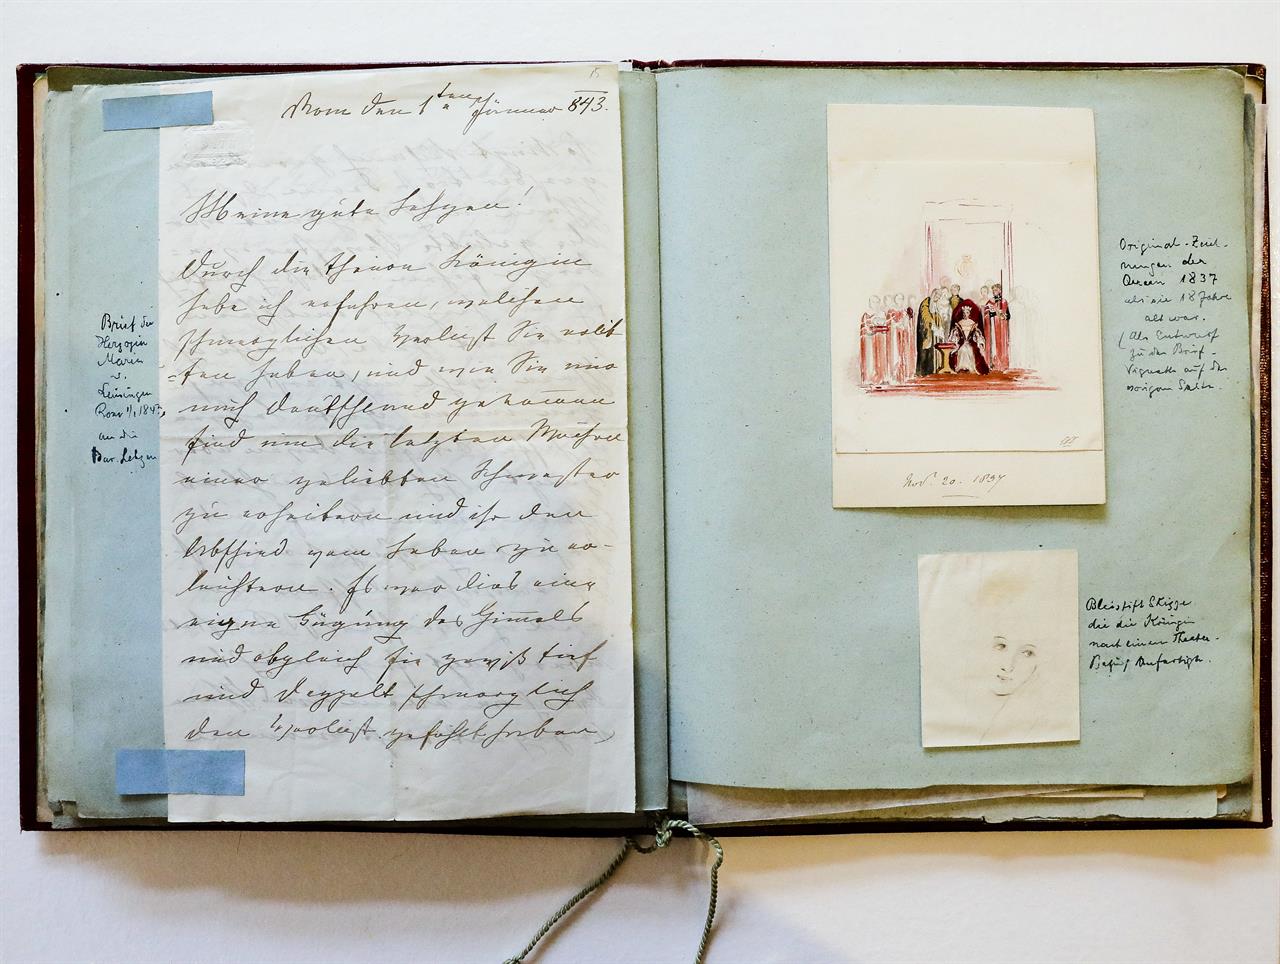 15
Rom den 1ten Jänner 843.
Meine gute Lehzen!
Durch die theure Königin
habe ich erfahren, welchen
schmerzlichen Verlust Sie erlit
=ten haben, und wie Sie nur
nach Deutschland gekommen
sind um die letzten Wochen
einer geliebten Schwester
zu erheitern und ihr den
Abschied vom Leben zu er-
leichtern. Es war dies eine
eigne Fügung des Himmels
und obgleich Sie gewiß tief
und doppelt schmerzlich
den Verlust gefühlt haben,
Brief der
Herzogin
Marie
v.
Leiningen
Rom 1/1 1843,
an die
Bar. Lehzen
Original-Zeich-
nungen der
Queen 1837
als sie 18 Jahre
alt war.
(Als Entwurf
zu der Brief-
Vignette auf der
vorigen Seite.
Nov. 20. 1837
Bleistift Skizze
die die Königin
nach einem Theater-
Besuch anfertigte.